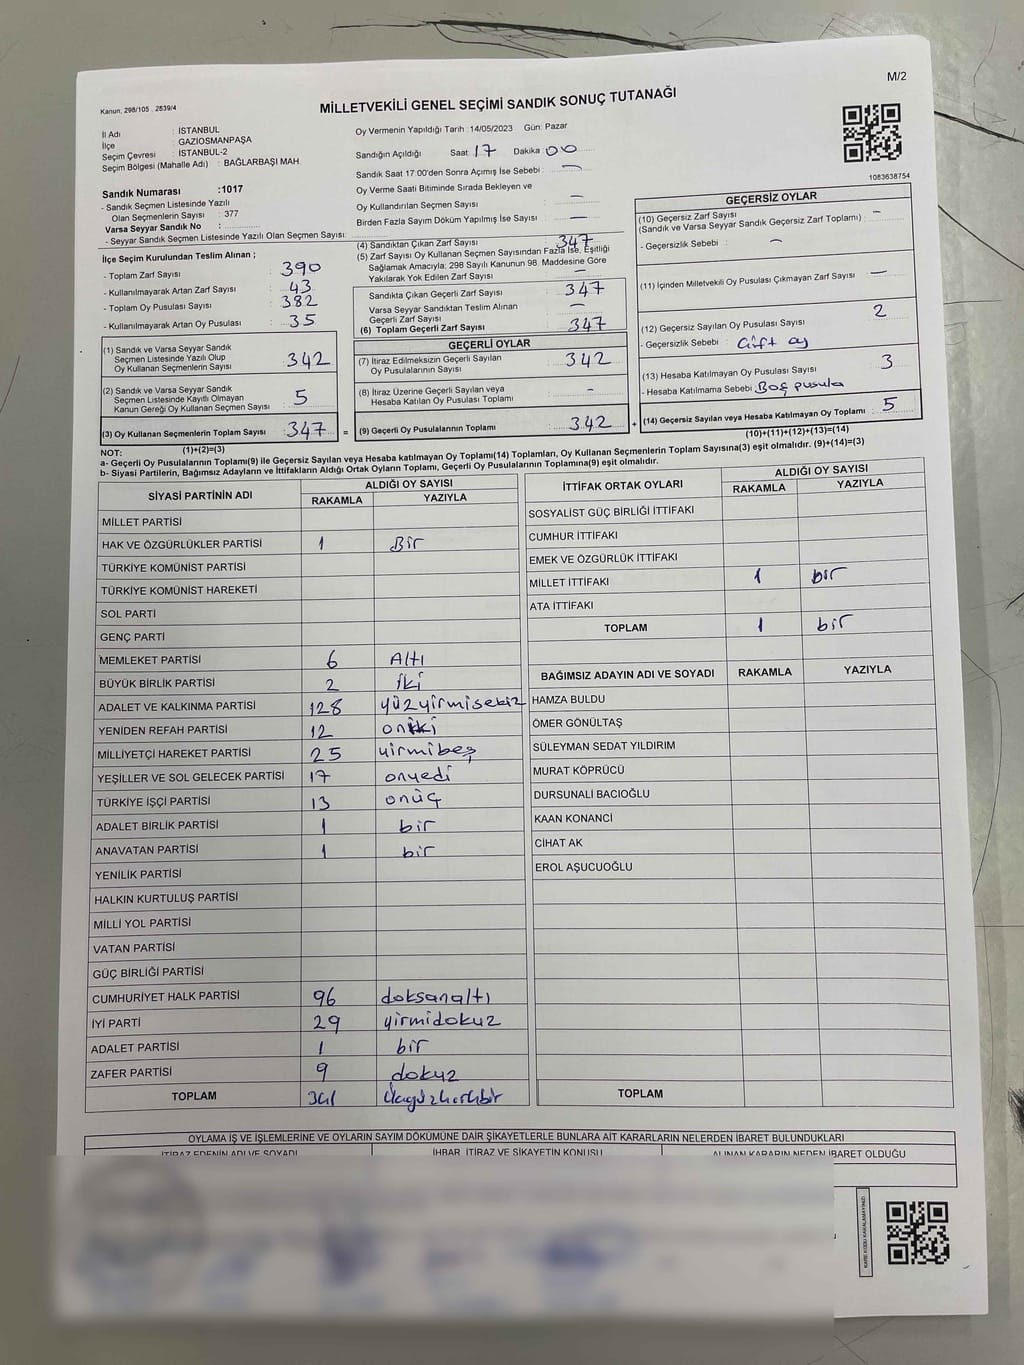 M/2
Kanun, 298/105 , 2839/4
MİLLETVEKİLİ GENEL SEÇİMİ SANDIK SONUÇ TUTANAĞI
İl Adı : İSTANBUL
İlçe : GAZİOSMANPAŞA
Seçim Çevresi : İSTANBUL-2
Seçim Bölgesi (Mahalle Adı) : BAĞLARBAŞI MAH.
Sandık Numarası :1017
- Sandık Seçmen Listesinde Yazılı
Olan Seçmenlerin Sayısı : 377
Varsa Seyyar Sandık No :
- Seyyar Sandık Seçmen Listesinde Yazılı Olan Seçmen Sayısı:
İlçe Seçim Kurulundan Teslim Alınan ;
- Toplam Zarf Sayısı : 390
- Kullanılmayarak Artan Zarf Sayısı : 43
- Toplam Oy Pusulası Sayısı : 382
- Kullanılmayarak Artan Oy Pusulası : 35
(1) Sandık ve Varsa Seyyar Sandık
Seçmen Listesinde Yazılı Olup
Oy Kullanan Seçmenlerin Sayısı : 342
(2) Sandık ve Varsa Seyyar Sandık
Seçmen Listesinde Kayıtlı Olmayan
Kanun Gereği Oy Kullanan Seçmen Sayısı : 5
(3) Oy Kullanan Seçmenlerin Toplam Sayısı : 347 =
(1)+(2)=(3)
Oy Vermenin Yapıldığı Tarih : 14/05/2023 Gün: Pazar
Sandığın Açıldığı Saat : 17 Dakika : 00
Sandık Saat 17:00'den Sonra Açımış İse Sebebi : —
Oy Verme Saati Bitiminde Sırada Bekleyen ve
Oy Kullandırılan Seçmen Sayısı : —
Birden Fazla Sayım Döküm Yapılmış İse Sayısı : —
(4) Sandıktan Çıkan Zarf Sayısı : 347
(5) Zarf Sayısı Oy Kullanan Seçmen Sayısından Fazla İse, Eşitliği
Sağlamak Amacıyla; 298 Sayılı Kanunun 98. Maddesine Göre
Yakılarak Yok Edilen Zarf Sayısı : —
Sandıkta Çıkan Geçerli Zarf Sayısı : 347
Varsa Seyyar Sandıktan Teslim Alınan
Geçerli Zarf Sayısı : —
(6) Toplam Geçerli Zarf Sayısı : 347
GEÇERLİ OYLAR
(7) İtiraz Edilmeksizin Geçerli Sayılan
Oy Pusulalarının Sayısı : 342
(8) İtiraz Üzerine Geçerli Sayılan veya
Hesaba Katılan Oy Pusulası Toplamı : -
(9) Geçerli Oy Pusulalarının Toplamı : 342 +
1083638754
GEÇERSİZ OYLAR
(10) Geçersiz Zarf Sayısı
(Sandık ve Varsa Seyyar Sandık Geçersiz Zarf Toplamı) : -
- Geçersizlik Sebebi : —
(11) İçinden Milletvekili Oy Pusulası Çıkmayan Zarf Sayısı : —
(12) Geçersiz Sayılan Oy Pusulası Sayısı : 2
- Geçersizlik Sebebi : Çift oy
(13) Hesaba Katılmayan Oy Pusulası Sayısı : 3
- Hesaba Katılmama Sebebi : Boş pusula
(14) Geçersiz Sayılan veya Hesaba Katılmayan Oy Toplamı : 5
(10)+(11)+(12)+(13)=(14)
NOT:
a- Geçerli Oy Pusulalarının Toplamı(9) ile Geçersiz Sayılan veya Hesaba katılmayan Oy Toplamı(14) Toplamları, Oy Kullanan Seçmenlerin Toplam Sayısına(3) eşit olmalıdır. (9)+(14)=(3)
b- Siyasi Partilerin, Bağımsız Adayların ve İttifakların Aldığı Ortak Oyların Toplamı, Geçerli Oy Pusulalarının Toplamına(9) eşit olmalıdır.
SİYASİ PARTİNİN ADI ALDIĞI OY SAYISI
RAKAMLA YAZIYLA
MİLLET PARTİSİ
HAK VE ÖZGÜRLÜKLER PARTİSİ 1 Bir
TÜRKİYE KOMÜNİST PARTİSİ
TÜRKİYE KOMÜNİST HAREKETİ
SOL PARTİ
GENÇ PARTİ
MEMLEKET PARTİSİ 6 Altı
BÜYÜK BİRLİK PARTİSİ 2 iki
ADALET VE KALKINMA PARTİSİ 128 yüzyirmisekiz
YENİDEN REFAH PARTİSİ 12 oniki
MİLLİYETÇİ HAREKET PARTİSİ 25 yirmibeş
YEŞİLLER VE SOL GELECEK PARTİSİ 17 onyedi
TÜRKİYE İŞÇİ PARTİSİ 13 onüç
ADALET BİRLİK PARTİSİ 1 bir
ANAVATAN PARTİSİ 1 bir
YENİLİK PARTİSİ
HALKIN KURTULUŞ PARTİSİ
MİLLİ YOL PARTİSİ
VATAN PARTİSİ
GÜÇ BİRLİĞİ PARTİSİ
CUMHURİYET HALK PARTİSİ 96 doksanaltı
İYİ PARTİ 29 yirmidokuz
ADALET PARTİSİ 1 bir
ZAFER PARTİSİ 9 dokuz
TOPLAM 341 üçyüzkırkbir
İTTİFAK ORTAK OYLARI ALDIĞI OY SAYISI
RAKAMLA YAZIYLA
SOSYALİST GÜÇ BİRLİĞİ İTTİFAKI
CUMHUR İTTİFAKI
EMEK VE ÖZGÜRLÜK İTTİFAKI
MİLLET İTTİFAKI 1 bir
ATA İTTİFAKI
TOPLAM 1 bir
BAĞIMSIZ ADAYIN ADI VE SOYADI RAKAMLA YAZIYLA
HAMZA BULDU
ÖMER GÖNÜLTAŞ
SÜLEYMAN SEDAT YILDIRIM
MURAT KÖPRÜCÜ
DURSUNALİ BACIOĞLU
KAAN KONANCİ
CİHAT AK
EROL AŞUCUOĞLU
TOPLAM
OYLAMA İŞ VE İŞLEMLERİNE VE OYLARIN SAYIM DÖKÜMÜNE DAİR ŞİKAYETLERLE BUNLARA AİT KARARLARIN NELERDEN İBARET BULUNDUKLARI
İTİRAZ EDENİN ADI VE SOYADI İHBAR, İTİRAZ VE ŞİKAYETİN KONUSU ALINAN KARARIN NEDEN İBARET OLDUĞU